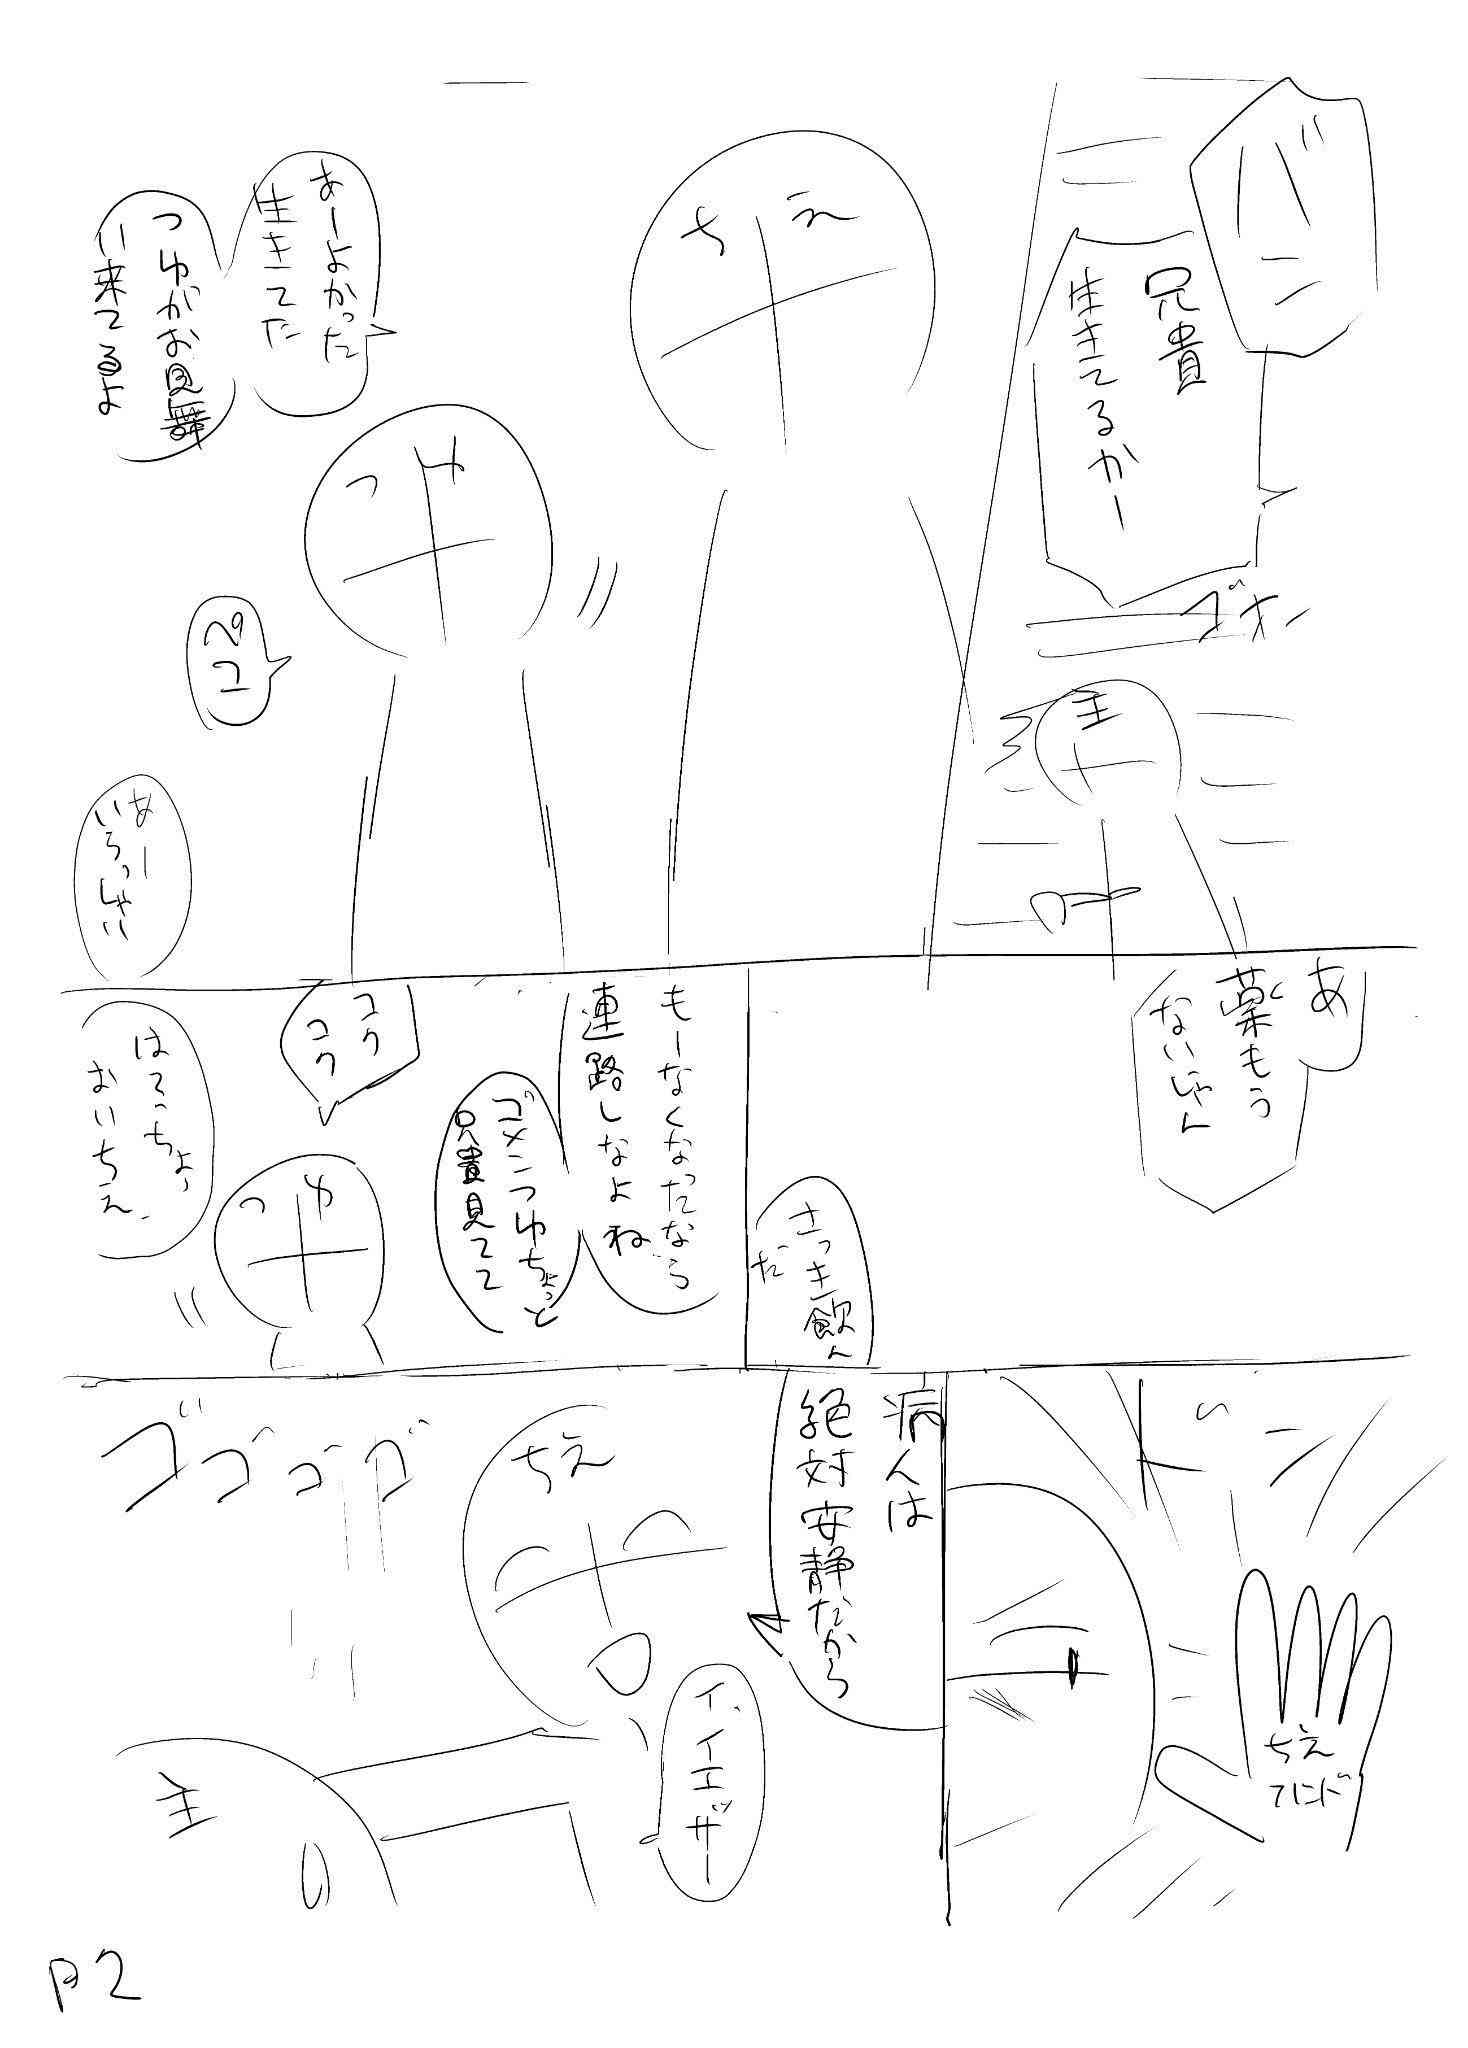 バン
兄貴
生きてるかー
ゴホッ
主
ちえ
あーよかった
生きてた
つゆがお見舞
い来てるよ
つゆ
ペコ
あー
いらっしゃい
あ
薬もう
ないじゃん
さっき飲ん
だ
もーなくなったなら
連絡しなよね
ゴメンつゆちょっと
兄貴見てて
コク
コク
つゆ
はてっちょっ
おいちえ、
ドン
ちえ
ハンド
病人は
絶対安静だから
ちえ
イ、イエッサー
ゴゴゴゴ
主
P2